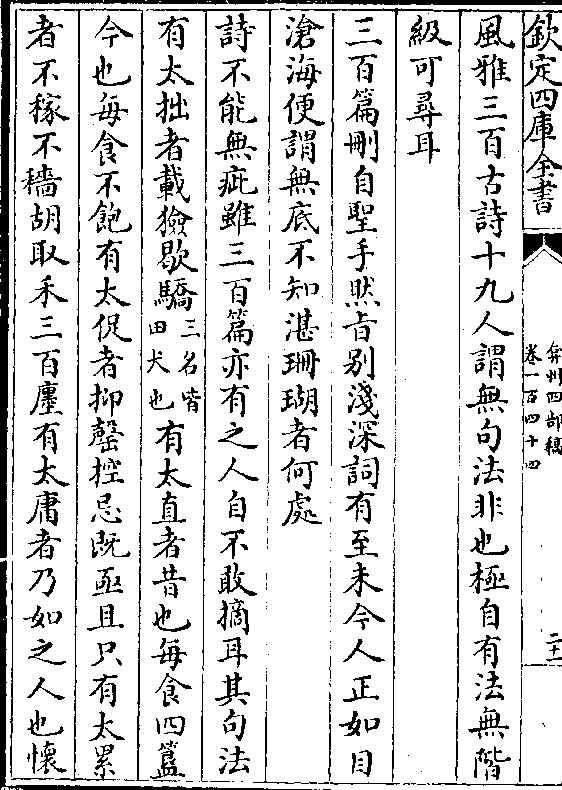 欽定四庫全書
弇州四部稿
卷一百四十四
二十
風雅三百古詩十九人謂無句法非也極自有法無階
級可尋耳
三百篇刪自聖手然㫖别淺深詞有至未今人正如目
滄海便謂無底不知湛珊瑚者何處
詩不能無疵雖三百篇亦有之人自不敢摘耳其句法
有太拙者載獫歇驕三名皆田犬也有太直者昔也每食四簋
今也每食不飽有太促者抑罄控忌既亟且只有太累
者不稼不穡胡取禾三百廛有太庸者乃如之人也懷